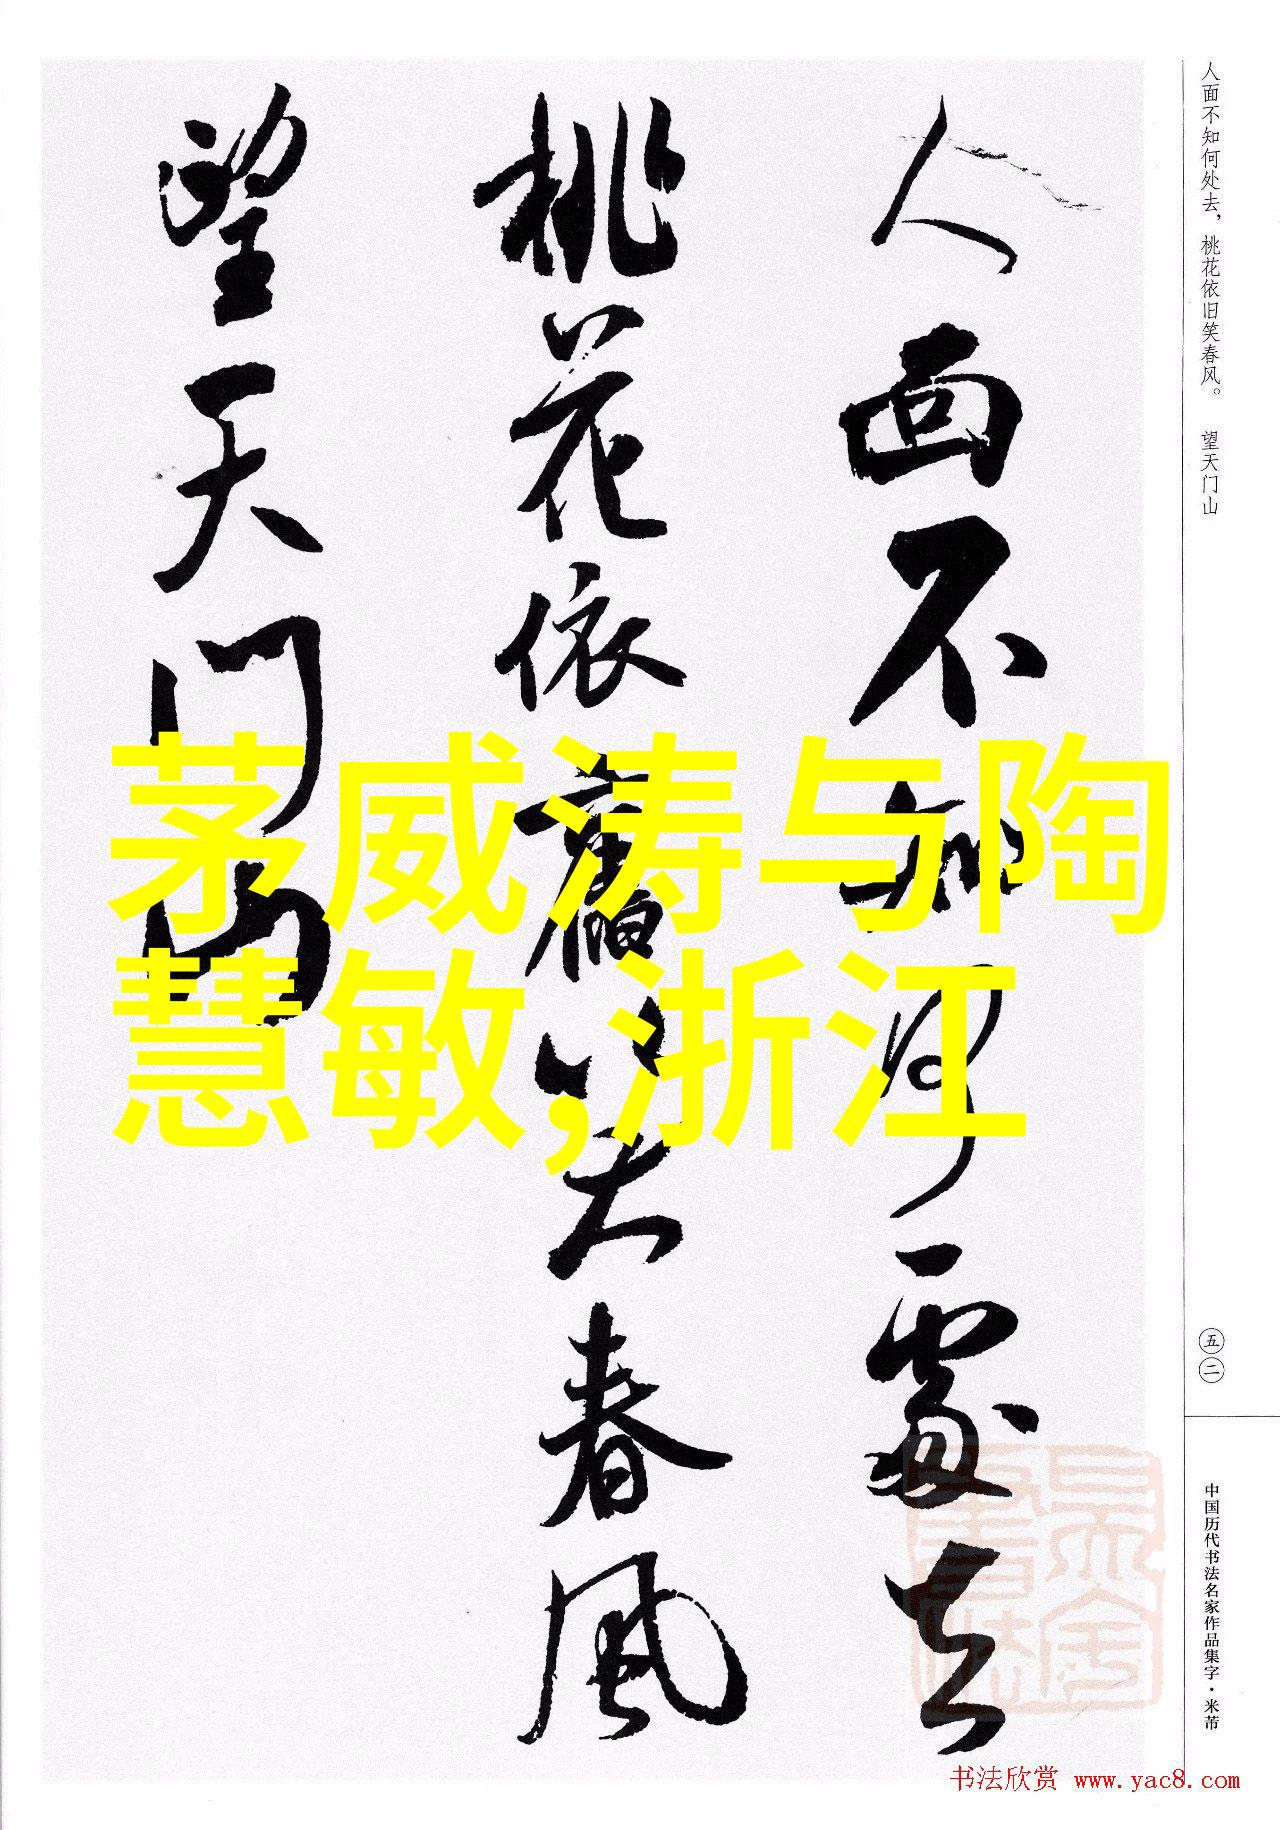 人面不知何處去
桃花依舊笑春風
望天門山
人面不知何处去，桃花依旧笑春风。 望天门山
五二
中国历代书法名家作品集字·米芾
茅威涛与陶
慧敏,浙江
书法欣赏 www.yac8.com